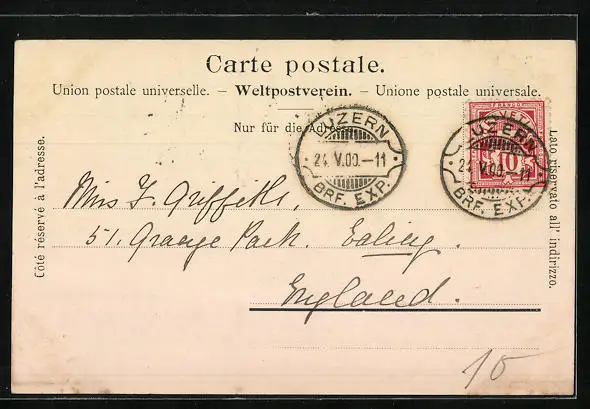 Carte postale.
Union postale universelle. – Weltpostverein. – Unione postale universale.
Nur für die Adresse.
Côté réservé à l'adresse.
Lato riservato all' indirizzo.
FRANCO
10
LUZERN
24.V.00.–11
BRF. EXP.
LUZERN
24.V.00.–11
BRF. EXP.
Miss F. Griffiths,
51. Grange Park. Ealing.
England.
10